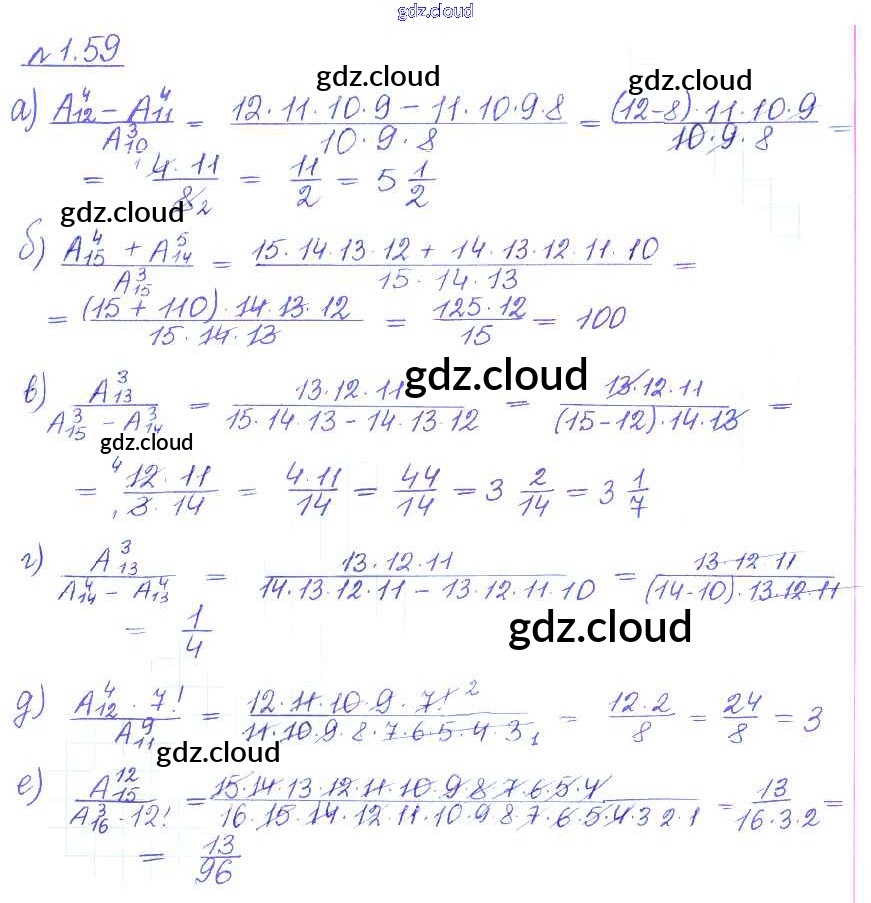 gdz.cloud
№ 1.59
gdz.cloud gdz.cloud
а) (A₁₂⁴ − A₁₁⁴)/A₁₀³ = (12·11·10·9 − 11·10·9·8)/(10·9·8) = ((12−8)·11·10·9)/(10·9·8) =
= (4·11)/8 ₂ = 11/2 = 5 1/2
gdz.cloud
б) (A₁₅⁴ + A₁₄⁵)/A₁₅³ = (15·14·13·12 + 14·13·12·11·10)/(15·14·13) =
= ((15 + 110)·14·13·12)/(15·14·13) = (125·12)/15 = 100
gdz.cloud
в) A₁₃³/(A₁₅³ − A₁₄³) = (13·12·11)/(15·14·13 − 14·13·12) = (13·12·11)/((15−12)·14·13) =
gdz.cloud
= (⁴12·11)/(₁3·14) = (4·11)/14 = 44/14 = 3 2/14 = 3 1/7
г) A₁₃³/(A₁₄⁴ − A₁₃⁴) = (13·12·11)/(14·13·12·11 − 13·12·11·10) = (13·12·11)/((14−10)·13·12·11)
= 1/4
gdz.cloud
д) (A₁₂⁴·7!)/A₁₁⁹ = (12·11·10·9·7! ²)/(11·10·9·8·7·6·5·4·3 ₁) = (12·2)/8 = 24/8 = 3
gdz.cloud
е) A₁₅¹²/(A₁₆³·12!) = (15·14·13·12·11·10·9·8·7·6·5·4)/(16·15·14·12·11·10·9·8·7·6·5·4·3·2·1) = 13/(16·3·2) =
= 13/96